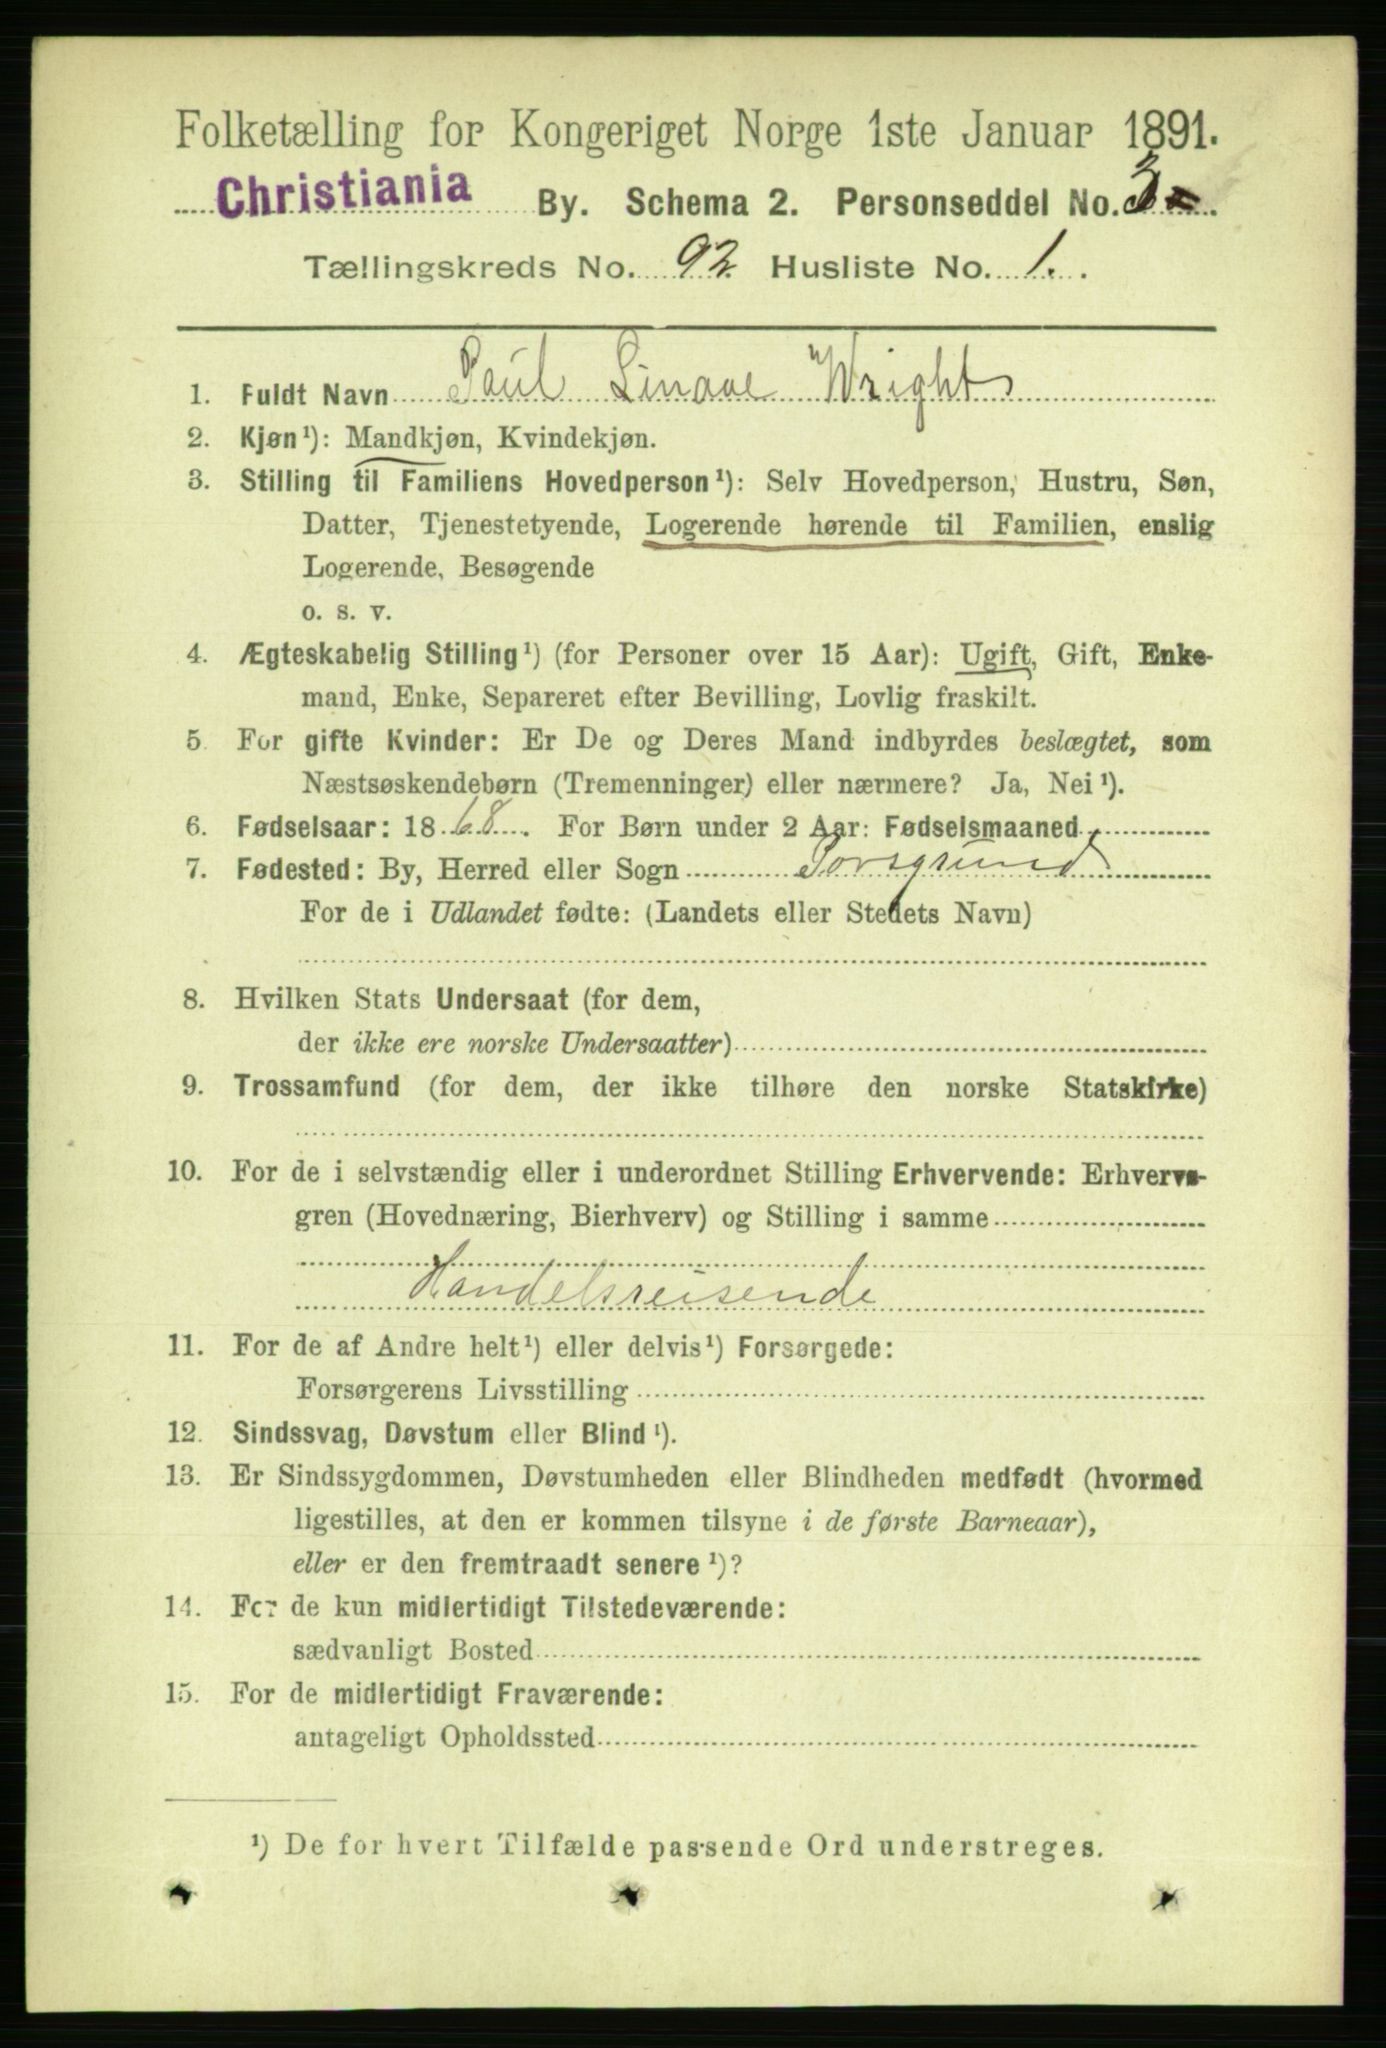 Folketælling for Kongeriget Norge 1ste Januar 1891.
Christiania By. Schema 2. Personseddel No. 3
Tællingskreds No. 92 Husliste No. 1.
1. Fuldt Navn Paul Linaae Wright
2. Kjøn¹): Mandkjøn, Kvindekjøn.
3. Stilling til Familiens Hovedperson¹): Selv Hovedperson, Hustru, Søn,
Datter, Tjenestetyende, Logerende hørende til Familien, enslig
Logerende, Besøgende
o. s. v.
4. Ægteskabelig Stilling¹) (for Personer over 15 Aar): Ugift, Gift, Enke-
mand, Enke, Separeret efter Bevilling, Lovlig fraskilt.
5. For gifte Kvinder: Er De og Deres Mand indbyrdes beslægtet, som
Næstsøskendebørn (Tremenninger) eller nærmere? Ja, Nei¹).
6. Fødselsaar: 1868. For Børn under 2 Aar: Fødselsmaaned
7. Fødested: By, Herred eller Sogn Porsgrund
For de i Udlandet fødte: (Landets eller Stedets Navn)
8. Hvilken Stats Undersaat (for dem,
der ikke ere norske Undersaatter)
9. Trossamfund (for dem, der ikke tilhøre den norske Statskirke)
10. For de i selvstændig eller i underordnet Stilling Erhvervende: Erhvervs-
gren (Hovednæring, Bierhverv) og Stilling i samme
Handelsreisende
11. For de af Andre helt¹) eller delvis¹) Forsørgede:
Forsørgerens Livsstilling
12. Sindssvag, Døvstum eller Blind¹).
13. Er Sindssygdommen, Døvstumheden eller Blindheden medfødt (hvormed
ligestilles, at den er kommen tilsyne i de første Barneaar),
eller er den fremtraadt senere¹)?
14. For de kun midlertidigt Tilstedeværende:
sædvanligt Bosted
15. For de midlertidigt Fraværende:
antageligt Opholdssted
¹) De for hvert Tilfælde passende Ord understreges.